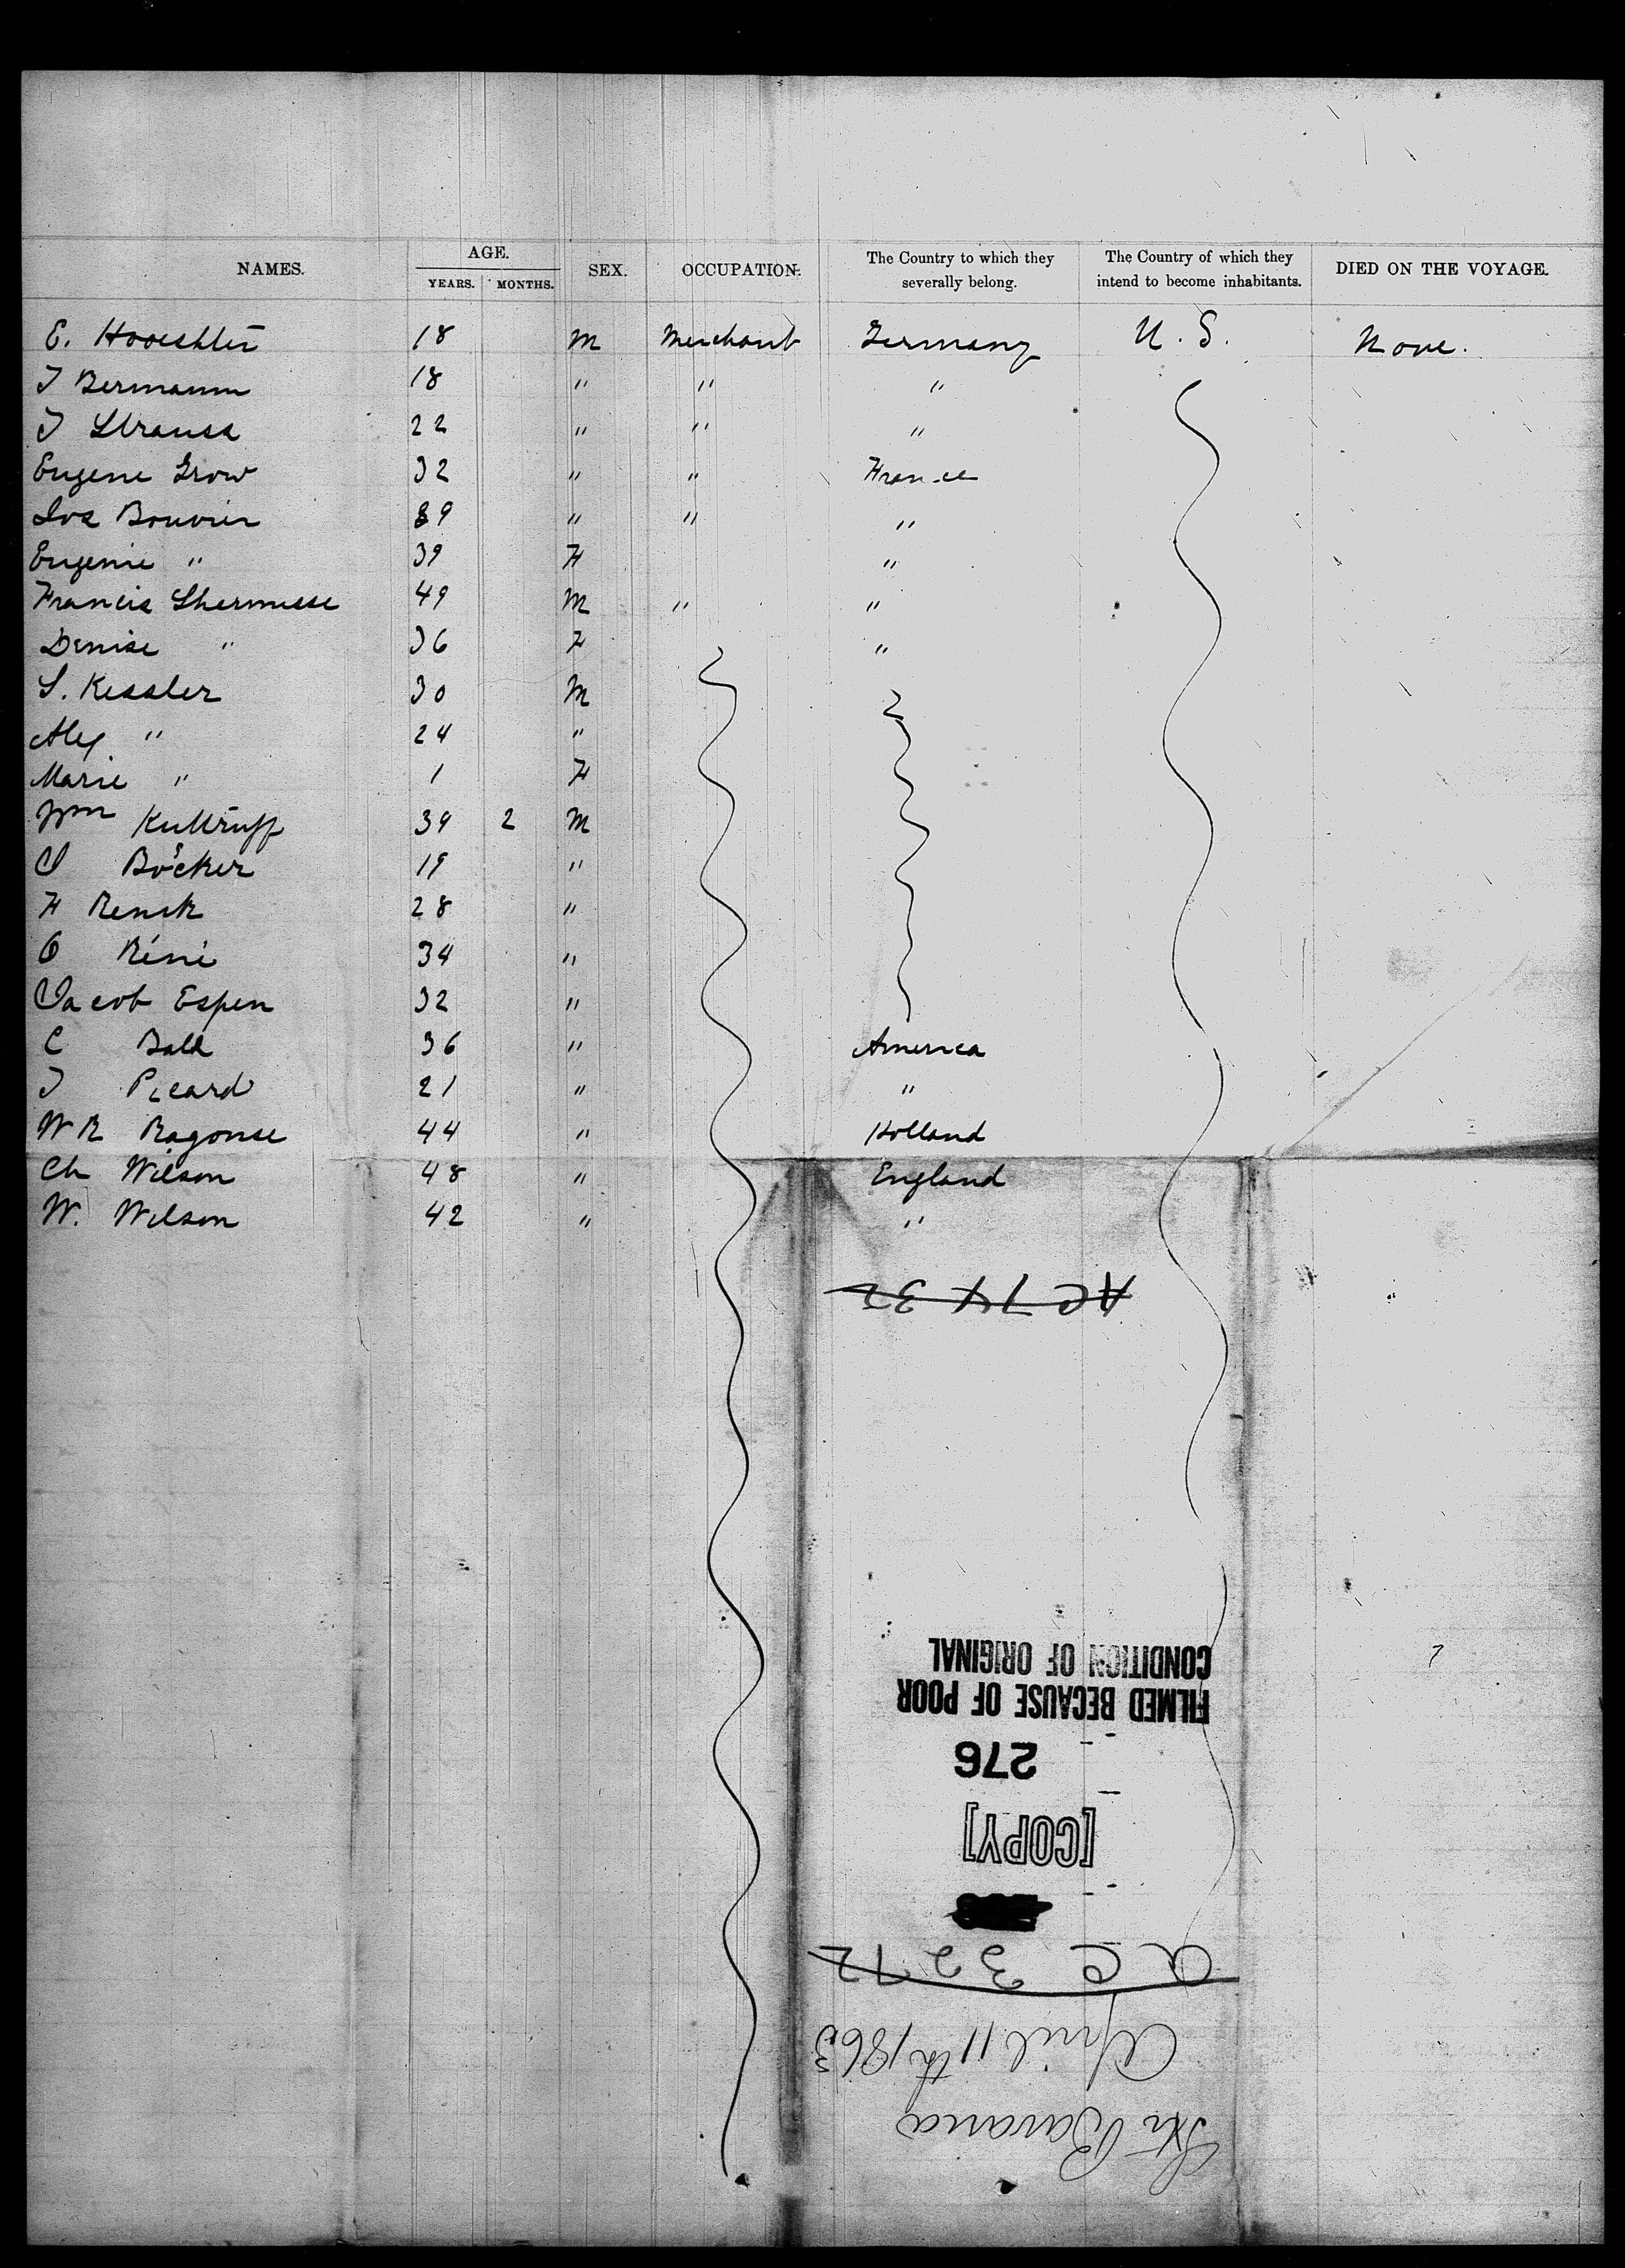 NAMES. AGE. YEARS. MONTHS. SEX. OCCUPATION. The Country to which they severally belong. The Country of which they intend to become inhabitants. DIED ON THE VOYAGE.
E. 18 M Merchant Germany U.S. None.
J Bermann 18 " " "
J Strauss 22 " " "
Eugene Grow 32 " " France
Jos Bouvier 39 " " "
Eugenie " 39 F "
Francis Lhermusse 49 M " "
Denise " 36 F "
S. Kessler 30 M
Alex " 24 "
Marie " 1 F
Wm Kuttruff 39 2 M
J Böcker 19 "
F Renck 28 "
O Réné 34 "
Jacob Espen 32 "
C Ball 36 " America
J Picard 21 " "
W R Ragonse 44 " Holland
Ch Wilson 48 " England
W. Wilson 42 " "
AC 74 32
Str Bavaria
April 11th 1863
a c 32 72
[COPY]
276
FILMED BECAUSE OF POOR
CONDITION OF ORIGINAL